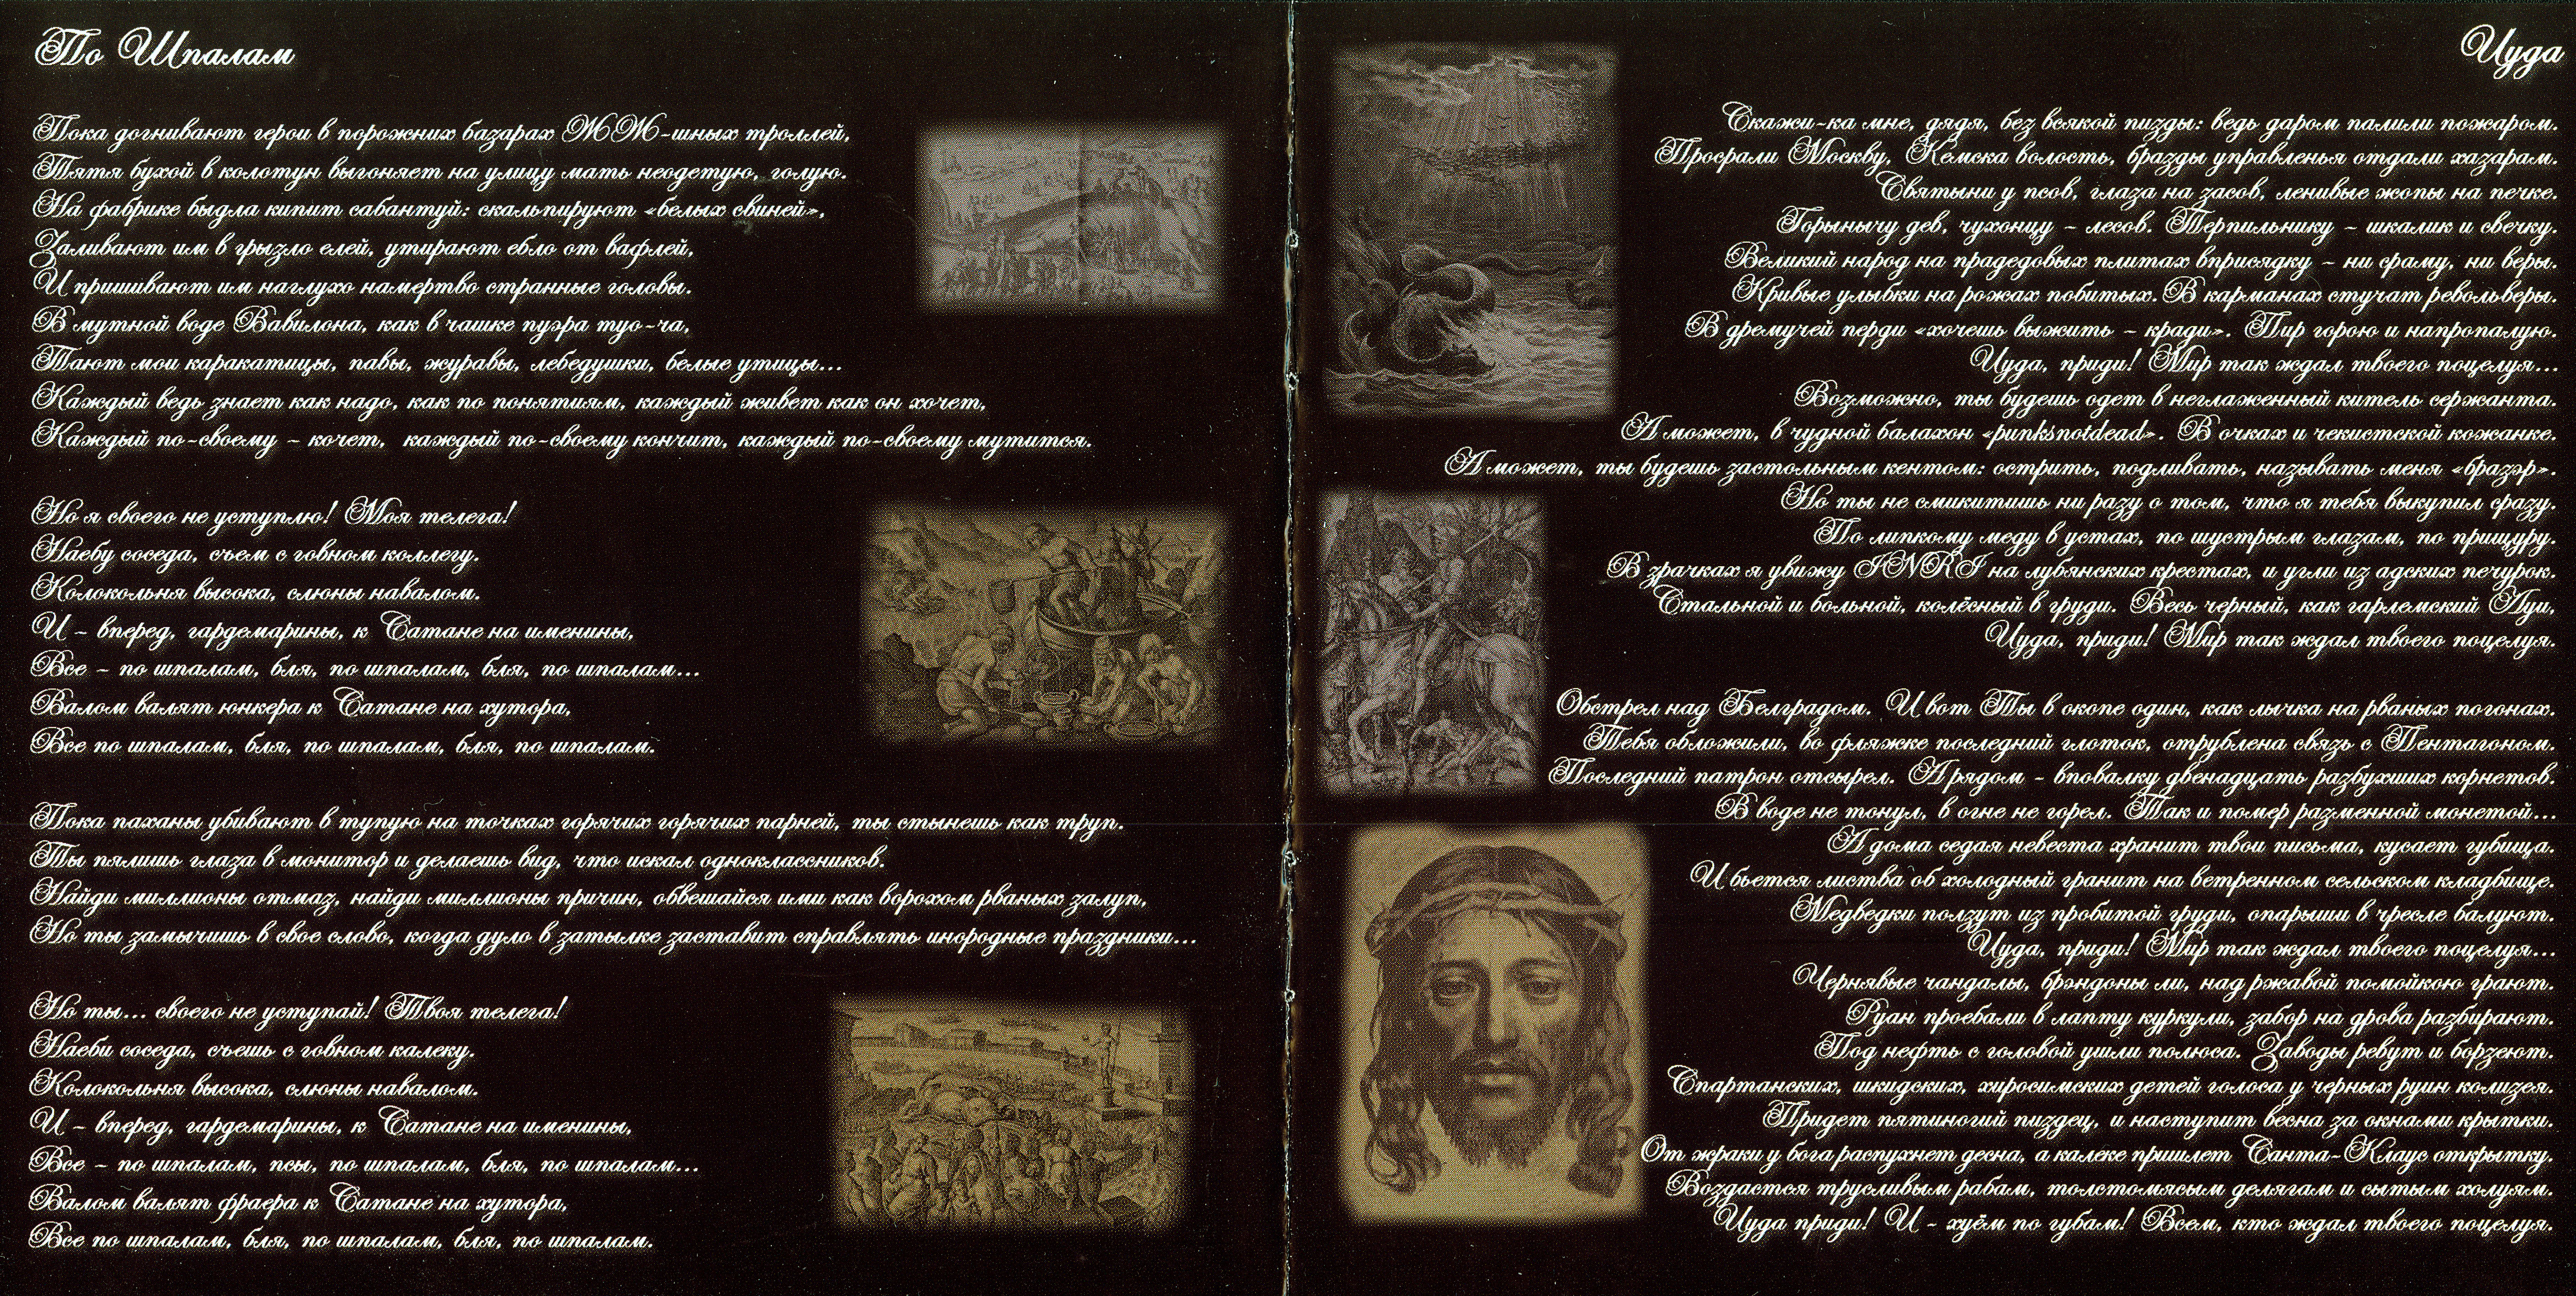 По Шпалам
Пока догнивают герои в порожних базарах ЖЖ-шных троллей,
Тятя бухой в колотун выгоняет на улицу мать неодетую, голую.
На фабрике быдла кипит сабантуй: скальпируют «белых свиней»,
Заливают им в грызло елей, утирают ебло от вафлей,
И пришивают им наглухо намертво странные головы.
В мутной воде Вавилона, как в чашке пуэра туо-ча,
Тают мои каракатицы, павы, журавы, лебедушки, белые утицы...
Каждый ведь знает как надо, как по понятиям, каждый живет как он хочет,
Каждый по-своему - кочет, каждый по-своему кончит, каждый по-своему мутится.
Но я своего не уступлю! Моя телега!
Наебу соседа, съем с говном коллегу.
Колокольня высока, слюны навалом.
И - вперед, гардемарины, к Сатане на именины,
Все - по шпалам, бля, по шпалам, бля, по шпалам...
Валом валят юнкера к Сатане на хутора,
Все по шпалам, бля, по шпалам, бля, по шпалам.
Пока паханы убивают в тупую на точках горячих горячих парней, ты стынешь как труп.
Ты пялишь глаза в монитор и делаешь вид, что искал одноклассников.
Найди миллионы отмаз, найди миллионы причин, обвешайся ими как ворохом рваных залуп,
Но ты замычишь в свое слово, когда дуло в затылке заставит справлять инородные праздники...
Но ты... своего не уступай! Твоя телега!
Наеби соседа, съешь с говном калеку.
Колокольня высока, слюны навалом.
И - вперед, гардемарины, к Сатане на именины,
Все - по шпалам, псы, по шпалам, бля, по шпалам...
Валом валят фраера к Сатане на хутора,
Все по шпалам, бля, по шпалам, бля, по шпалам.
Иуда
Скажи-ка мне, дядя, без всякой пизды: ведь даром палили пожаром.
Просрали Москву, Кемска волость, бразды управленья отдали хазарам.
Святыни у псов, глаза на засов, ленивые жопы на печке.
Горынычу дев, чухонцу - лесов. Терпильнику - шкалик и свечку.
Великий народ на прадедовых плитах вприсядку - ни сраму, ни веры.
Кривые улыбки на рожах побитых. В карманах стучат револьверы.
В дремучей перди «хочешь выжить - кради». Пир горою и напропалую.
Иуда, приди! Мир так ждал твоего поцелуя...
Возможно, ты будешь одет в неглаженный китель сержанта.
А может, в чудной балахон «punksnotdead». В очках и чекистской кожанке.
А может, ты будешь застольным кентом: острить, подливать, называть меня «бразэр».
Но ты не смикитишь ни разу о том, что я тебя выкупил сразу.
По липкому меду в устах, по шустрым глазам, по прищуру.
В зрачках я увижу INRI на лубянских крестах, и угли из адских печурок.
Стальной и больной, колёсный в груди. Весь черный, как гарлемский Луи,
Иуда, приди! Мир так ждал твоего поцелуя.
Обстрел над Белградом. И вот Ты в окопе один, как лычка на рваных погонах.
Тебя обложили, во фляжке последний глоток, отрублена связь с Пентагоном.
Последний патрон отсырел. А рядом - вповалку двенадцать разбухших корнетов.
В воде не тонул, в огне не горел. Так и помер разменной монетой...
А дома седая невеста хранит твои письма, кусает губища.
И бьется листва об холодный гранит на ветренном сельском кладбище.
Медведки ползут из пробитой груди, опарыши в чресле балуют.
Иуда, приди! Мир так ждал твоего поцелуя...
Чернявые чандалы, брэндоны ли, над ржавой помойкою грают.
Руан проебали в лапту куркули, забор на дрова разбирают.
Под нефть с головой ушли полюса. Заводы ревут и борзеют.
Спартанских, шкидских, хиросимских детей голоса у черных руин колизея.
Придет пятиногий пиздец, и наступит весна за окнами крытки.
От жраки у бога распухнет десна, а калеке пришлет Санта-Клаус открытку.
Воздастся трусливым рабам, толстомясым делягам и сытым холуям.
Иуда приди! И - хуём по губам! Всем, кто ждал твоего поцелуя.